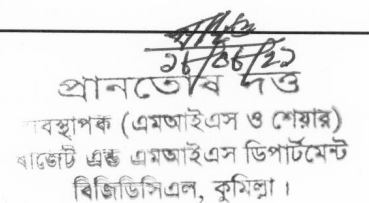 ১৮/০৮/২১
প্রানতোষ দত্ত
ব্যবস্থাপক (এমআইএস ও শেয়ার)
বাজেট এন্ড এমআইএস ডিপার্টমেন্ট
বিজিডিসিএল, কুমিল্লা।